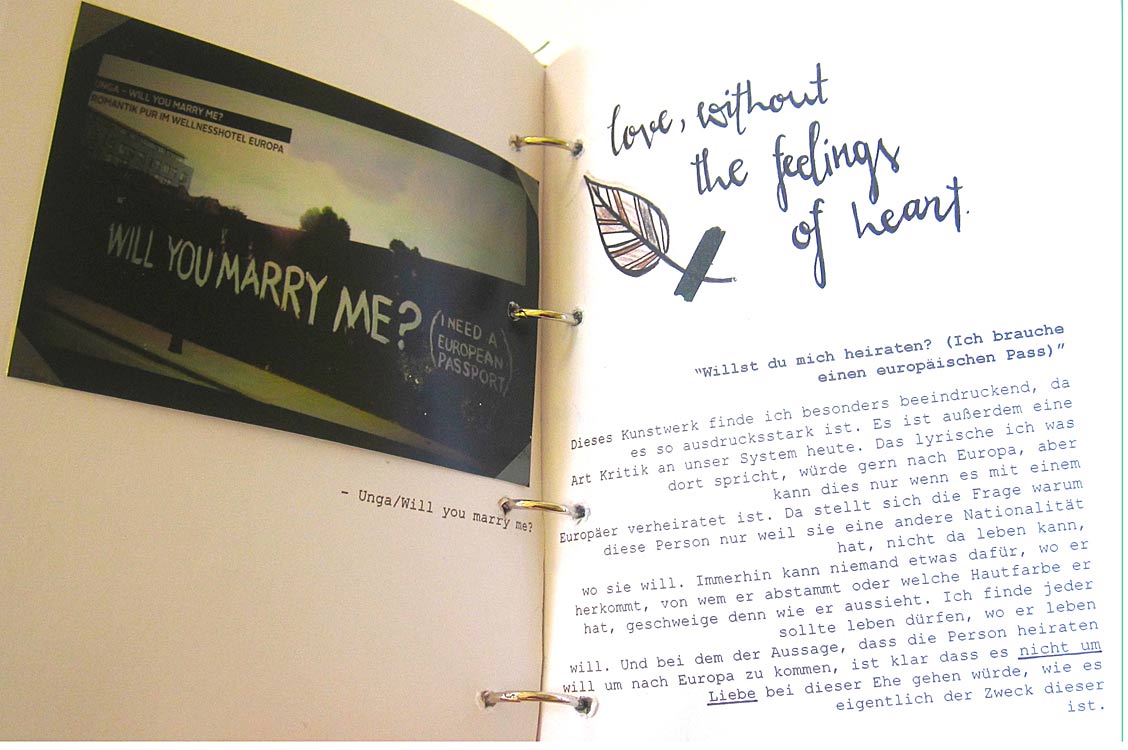 UNGA – WILL YOU MARRY ME?
ROMANTIK PUR IM WELLNESSHOTEL EUROPA
WILL YOU MARRY ME?
(I NEED A
EUROPEAN
PASSPORT)
- Unga/Will you marry me?
love, without
the feelings
of heart.
"Willst du mich heiraten? (Ich brauche
einen europäischen Pass)"
Dieses Kunstwerk finde ich besonders beeindruckend, da
es so ausdrucksstark ist. Es ist außerdem eine
Art Kritik an unser System heute. Das lyrische ich was
dort spricht, würde gern nach Europa, aber
kann dies nur wenn es mit einem
Europäer verheiratet ist. Da stellt sich die Frage warum
diese Person nur weil sie eine andere Nationalität
hat, nicht da leben kann,
wo sie will. Immerhin kann niemand etwas dafür, wo er
herkommt, von wem er abstammt oder welche Hautfarbe er
hat, geschweige denn wie er aussieht. Ich finde jeder
sollte leben dürfen, wo er leben
will. Und bei dem der Aussage, dass die Person heiraten
will um nach Europa zu kommen, ist klar dass es nicht um
Liebe bei dieser Ehe gehen würde, wie es
eigentlich der Zweck dieser
ist.